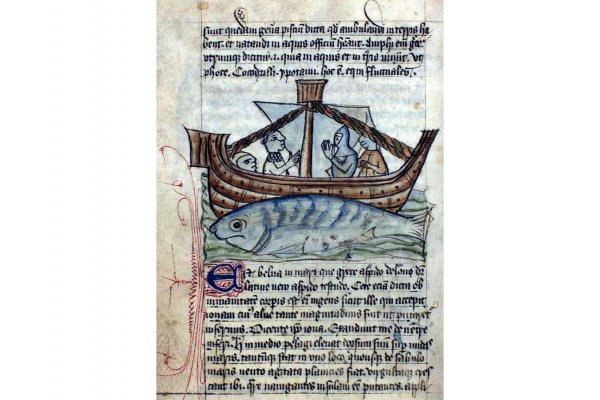 sunt quedam gena pisciū dicta qd ambulandi in terris ha
bent. et natandi in aquis officiū hēant. Amphi em gre
utrumque dicitur .i. quia in aquis et in tris uiuūt. Vt
phoce. Cocodrilli. ypotami. hoc ē. equi fluctuales.
Est belua in mari que grece aspido delone dr
latine uero aspido testudo. Cete eciā dicta ob
inmanitatem corpis est enī ingens sicut ille qui accepit
ionam cuius aluus tante magnitudinis fuit ut putaret
infernus. Dicente ipso iona. Exaudiuit me de uentre
inferi. in medio pelagi eleuat dorsum suū super undas
maris. tantumque stat in uno loco. quousque de sabulo
maris uento agitata planicies fiat. cres
cant ibi. nauigantes insulam eē putantes. appli